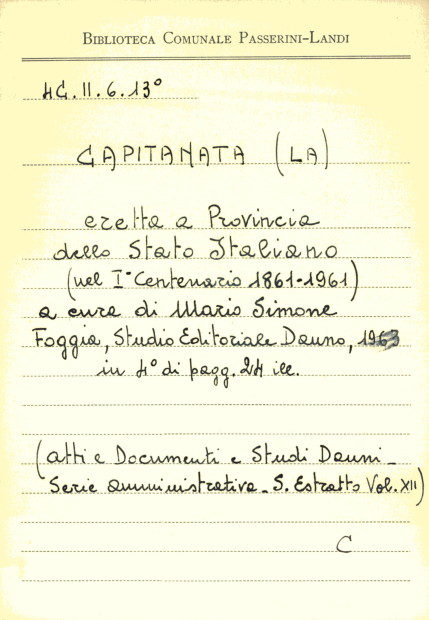 BIBLIOTECA COMUNALE PASSERINI-LANDI
4C. II. 6. 13°
CAPITANATA (LA)
eretta a Provincia
dello Stato Italiano
(nel I° Centenario 1861-1961)
a cura di Mario Simone
Foggia, Studio Editoriale Dauno, 1963
in 4° di pagg. 24 ill.
(atti e Documenti e Studi Dauni_
Serie amministrativa_ S. Estratto Vol. XII)
C